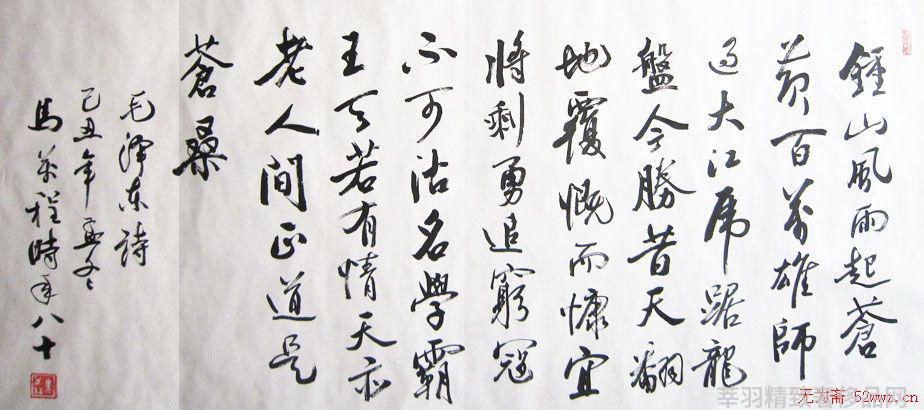 鍾山風雨起蒼
黃百萬雄師
過大江虎踞龍
盤今勝昔天翻
地覆慨而慷宜
將剩勇追窮寇
不可沽名學霸
王天若有情天亦
老人間正道是
蒼桑
毛泽东詩
己丑年孟冬
馬萬程時年八十
幸羽精致奢侈品网
无为斋 52wwz.cn